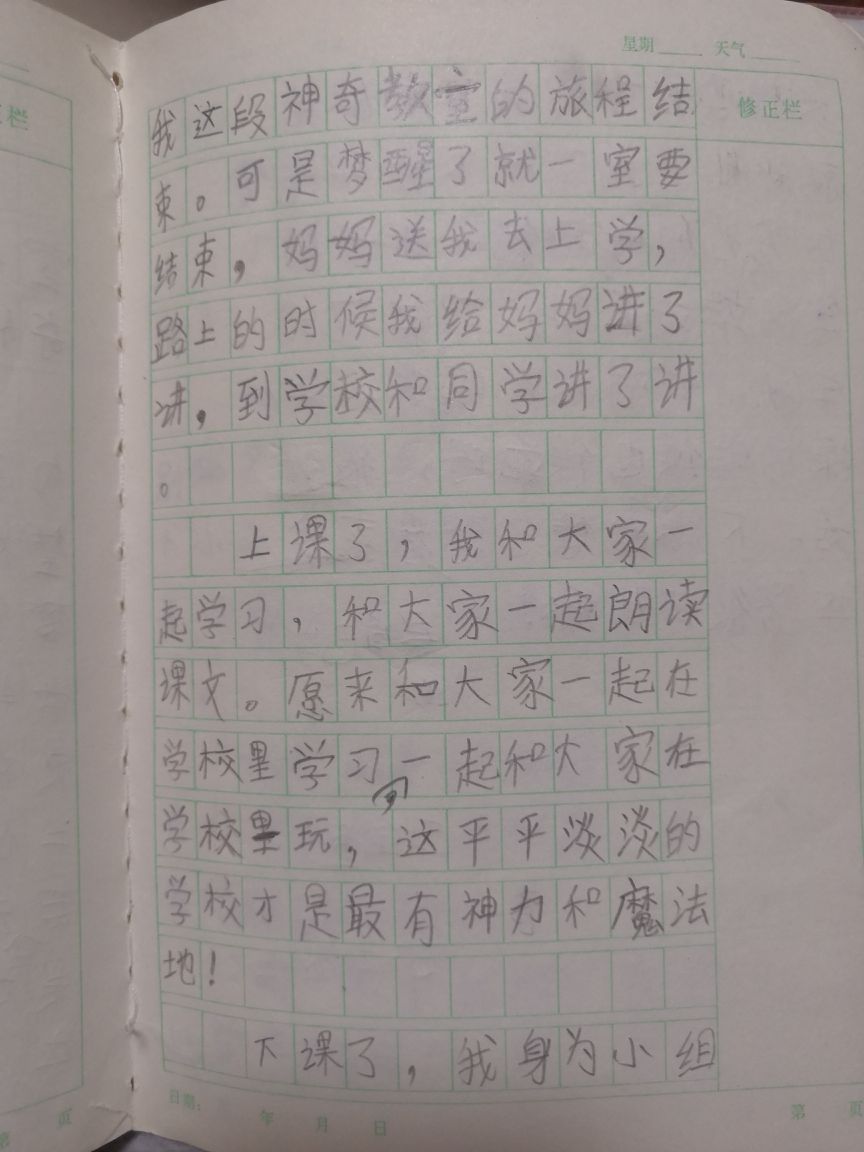 星期 天气
栏
修正栏
我这段神奇教室的旅程结
束。可是梦醒了就一室要
结束,妈妈送我去上学,
路上的时候我给妈妈讲了
讲,到学校和同学讲了讲
。
上课了,我和大家一
起学习,和大家一起朗读
课文。愿来和大家一起在
学校里学习,一起和大家在
学校里玩,这平平淡淡的
学校才是最有神力和魔法
地!
下课了,我身为小组
日期: 年 月 日
第 页
第 页